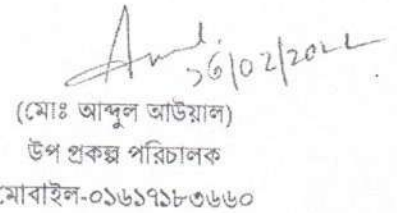 ১৬/০২/২০২২
(মোঃ আব্দুল আউয়াল)
উপ প্রকল্প পরিচালক
মোবাইল-০১৬১৭১৮৩৬৬০